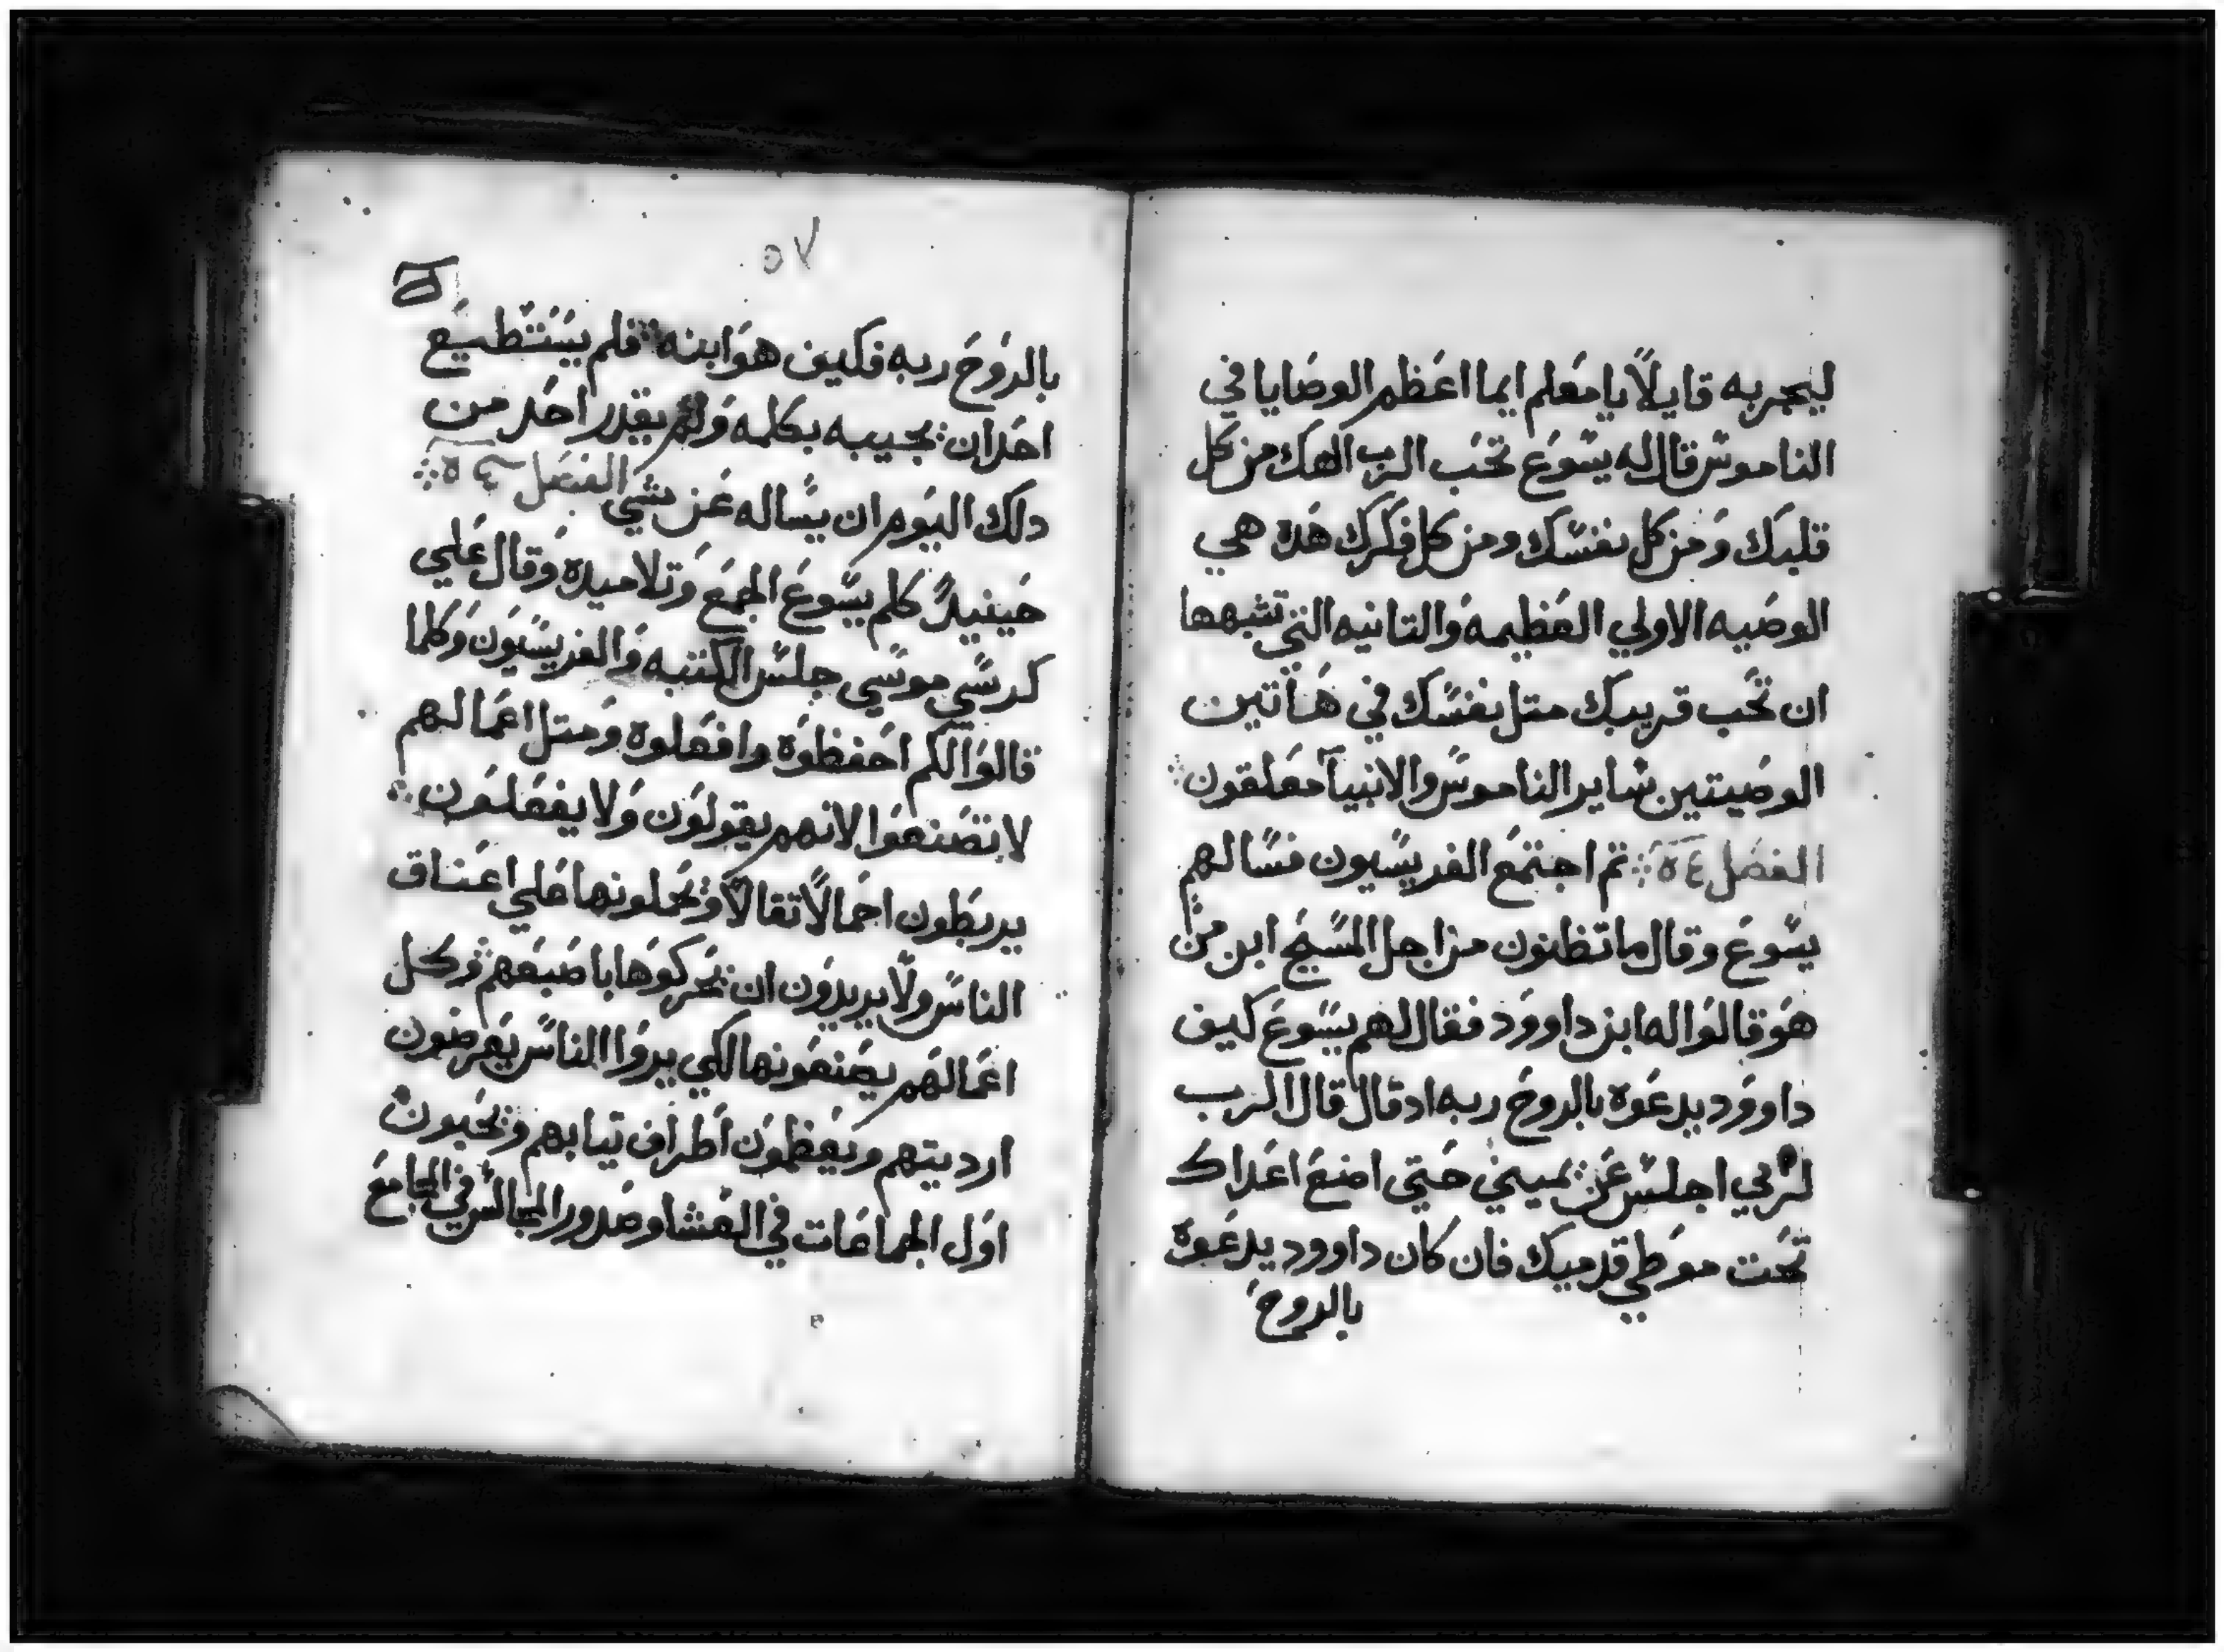 ليجربه قايلاً يا معلم ايما اعظم الوصايا في
الناموس قال له يسوع تحب الرب الهك من كل
قلبك ومن كل نفسك ومن كل فكرك هده هي
الوصيه الاولي العظيمه والتانيه التي تشبهها
ان تحب قريبك متل نفسك في هاتين
الوصيتين ساير الناموس والانبيا معلقون
الفصل ٥٤ تم اجتمع الفريسيون فسالهم
يسوع وقال ما تظنون من اجل المسيح ابن من
هو قالوا له ابن داوود فقال لهم يسوع كيف
داوود يدعوه بالروح ربه اد قال قال الرب
لربي اجلس عن يميني حتي اضع اعداك
تحت موطي قدميك فان كان داوود يدعوه
بالروح
٥٧
بالروح ربه فكيف هو ابنه فلم يستطيع
احد ان يجيبه بكلمه ولم يقدر احد من
دلك اليوم ان يساله عن شي الفصل
حينيد كلم يسوع الجمع وتلاميده وقال علي
كرسي موسي جلس الكتبه والفريسيون وكلما
قالوا لكم احفظوه وافعلوه ومتل اعمالهم
لا تصنعوا لانهم يقولون ولا يفعلون
يربطون احمالاً تقالاً ويحملونها علي اعناق
الناس ولا يريدون ان يحركوها باصبعهم وكل
اعمالهم يصنعونها لكي يروا الناس يعرضون
ارديتهم ويعظمون اطراف تيابهم ويحبون
اول الجماعات في العشا وصدور المجالس في المجامع